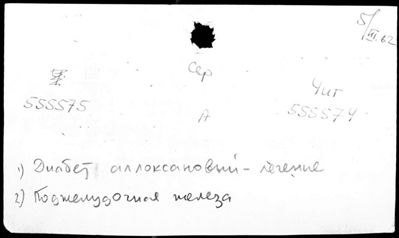 5/III.62
Сер
Чит
555575
А
555574
1) Диабет аллоксановый - лечение
2) Поджелудочная железа